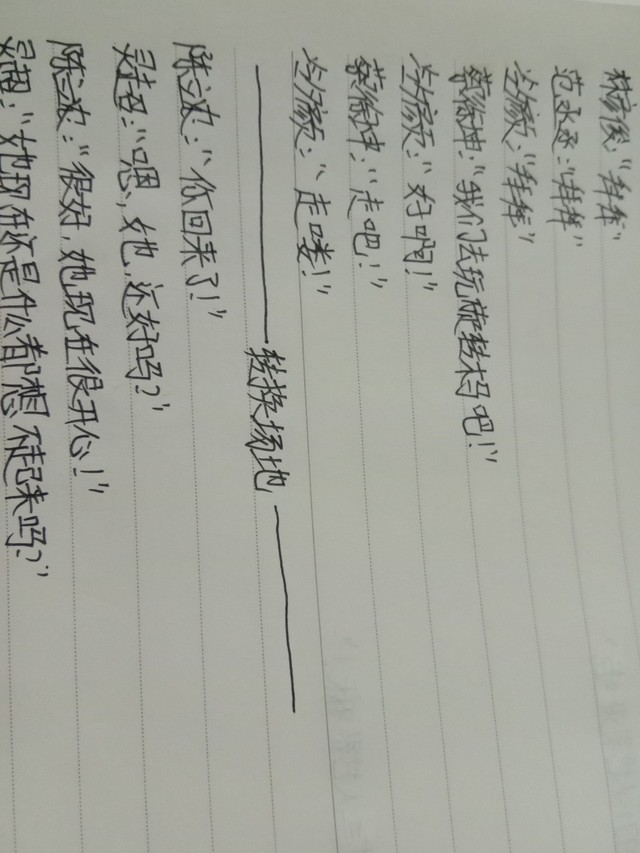 林彦俊："拜拜"
范丞丞："拜拜"
冷："拜拜"
蔡徐坤："我们去玩旋转木马吧！"
冷："好啊！"
蔡徐坤："走吧！"
冷："走喽！"
——转换场地——
陈立农："你回来了！"
灵超："嗯，她，还好吗？"
陈立农："很好，她现在很开心！"
灵超："她现在还是什么都想不起来吗？"